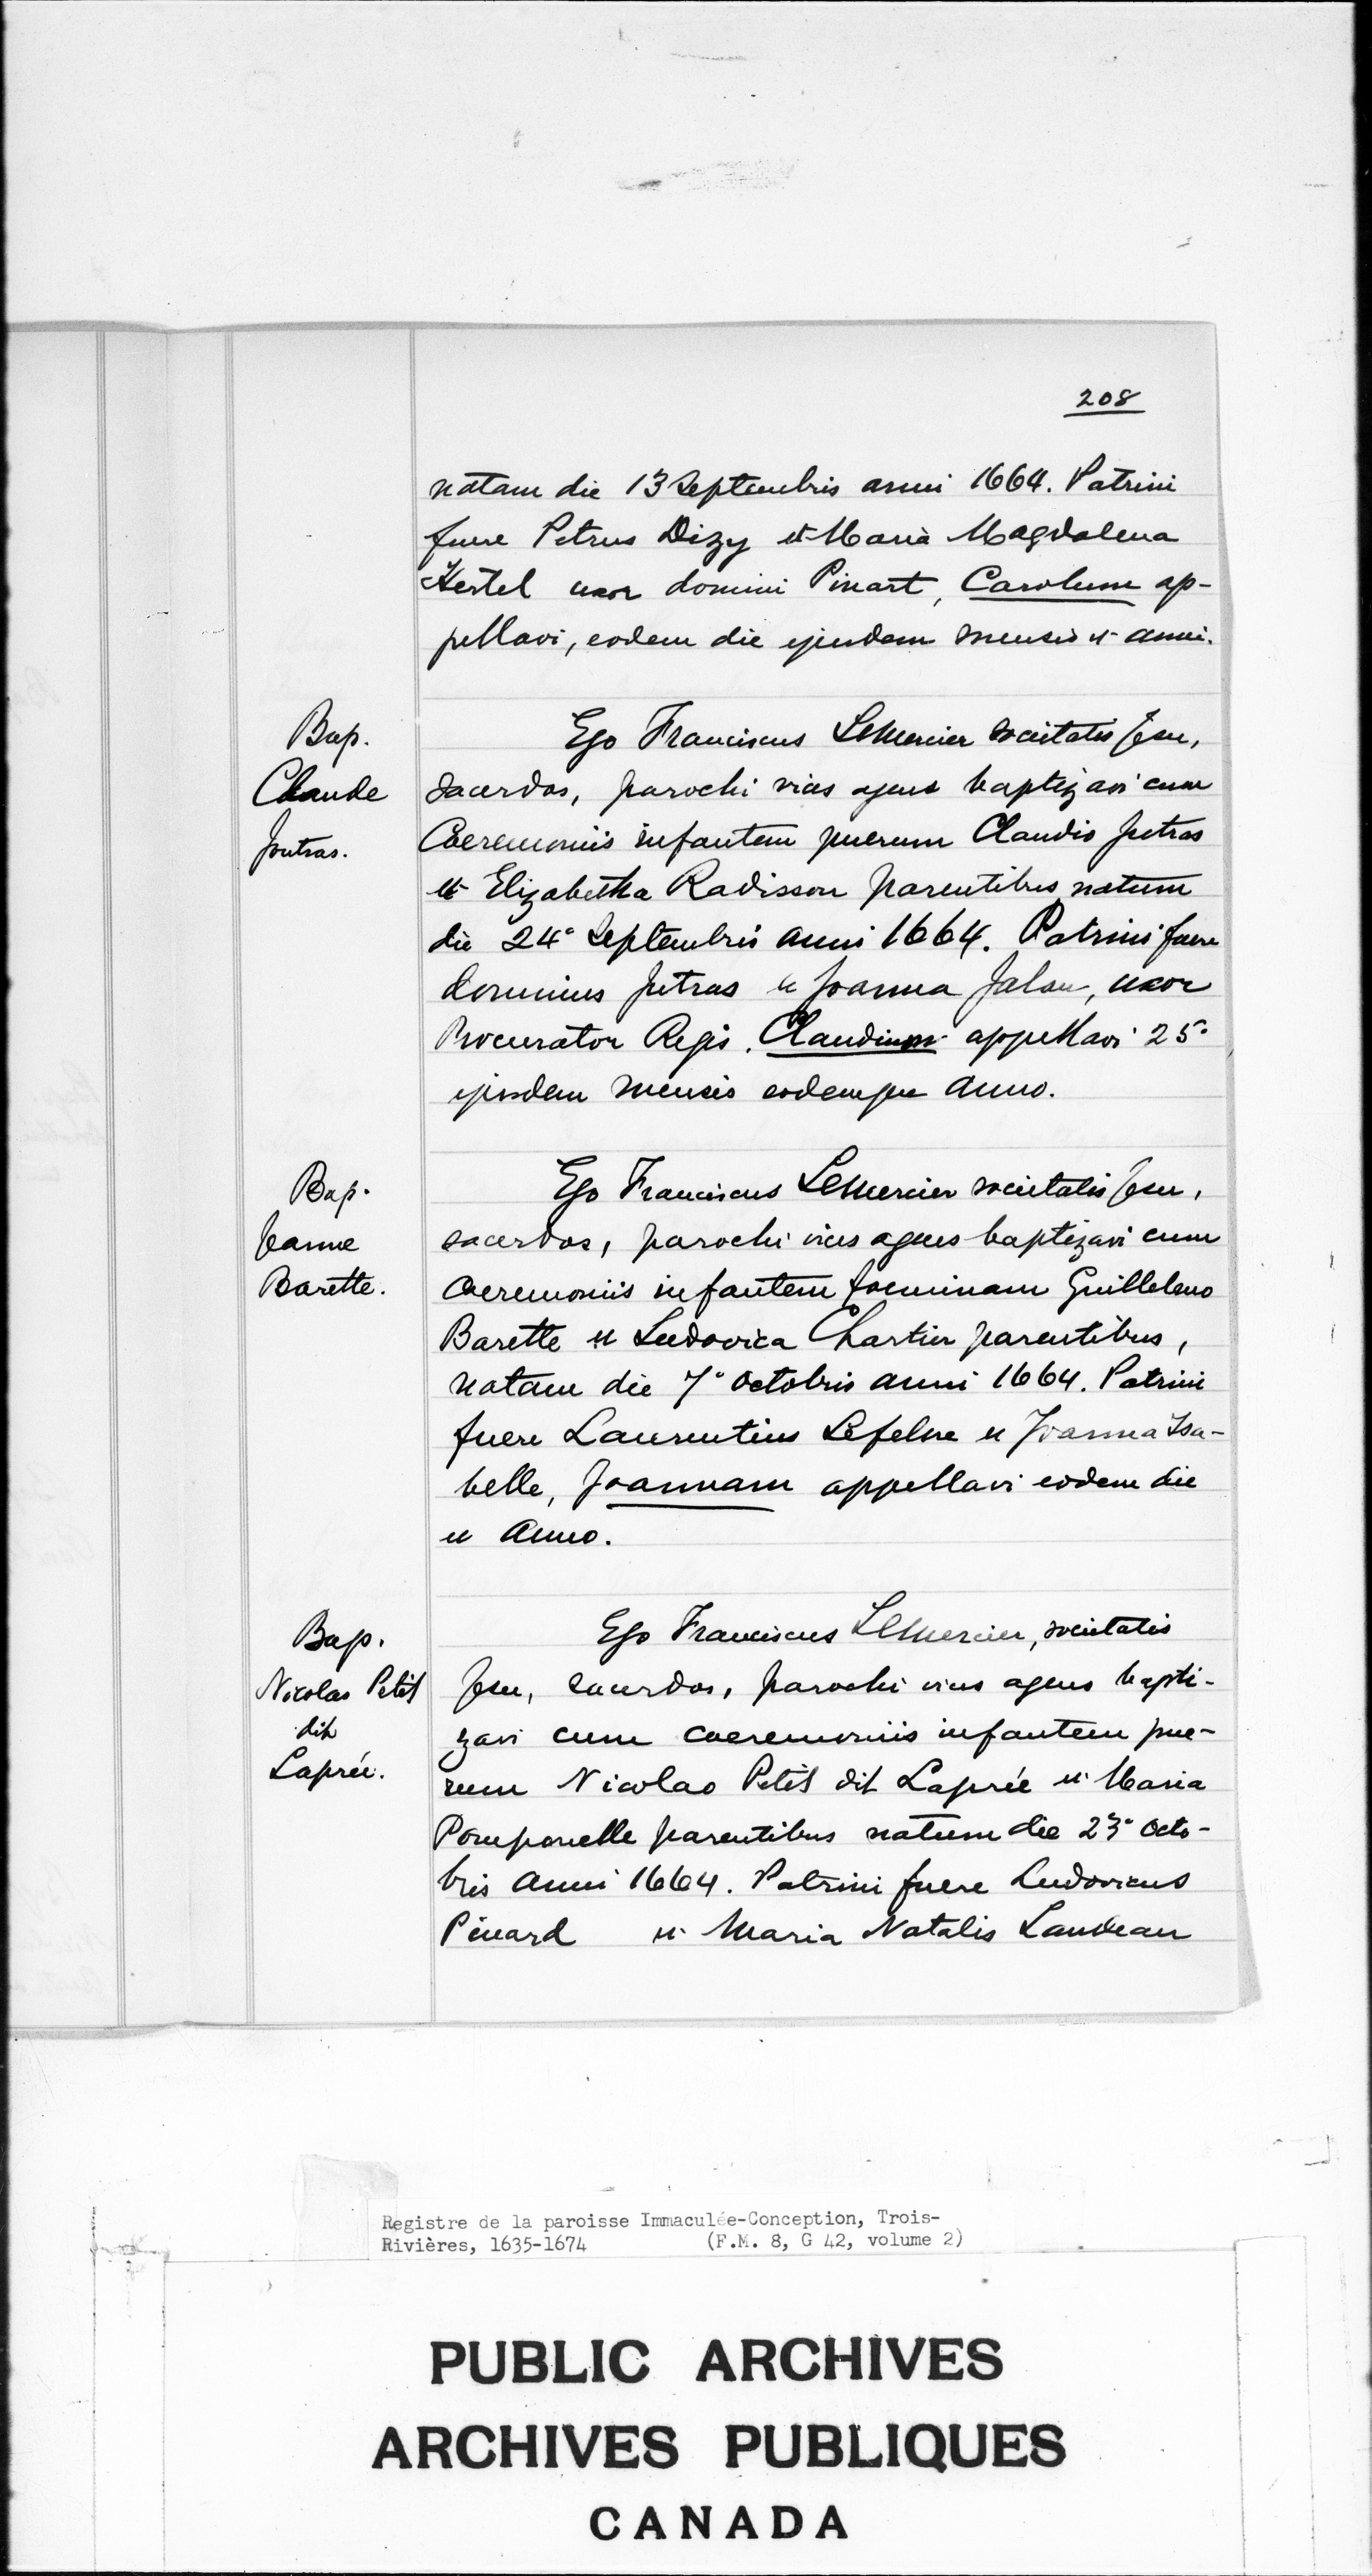 208
natam die 13 Septembris anni 1664. Patrini
fuere Petrus Dizy et Maria Magdalena
Hertel uxor domini Pinart, Carolum ap-
pellavi, eodem die ejusdem mensis et anni.
Bap.
Claude
Joutras.
Ego Franciscus LeMercier societatis Jesu,
sacerdos, parochi vices agens baptizavi cum
Caeremoniis infantem puerum Claudio Jutras
et Elizabetha Radisson parentibus natum
die 24° Septembris anni 1664. Patrini fuere
dominus Jutras et Joanna Jalau, uxor
Procurator Regis. Claudium appellavi 25°
ejusdem mensis eodemque anno.
Bap.
Jeanne
Barette.
Ego Franciscus LeMercier societatis Jesu,
sacerdos, parochi vices agens baptizavi cum
caeremoniis infantem foeminam Guillelmo
Barette et Ludovica Chartier parentibus,
natam die 7° octobris anni 1664. Patrini
fuere Laurentius Lefebvre et Joanna Isa-
belle, Joannam appellavi eodem die
et anno.
Bap.
Nicolas Petit
dit
Laprée.
Ego Franciscus LeMercier, societatis
Jesu, sacerdos, parochi vices agens bapti-
zavi cum caeremoniis infantem pue-
rum Nicolao Petit dit Laprée et Maria
Pomponelle parentibus natum die 23° Octo-
bris anni 1664. Patrini fuere Ludovicus
Pinard et Maria Natalis Landeau
Registre de la paroisse Immaculée-Conception, Trois-
Rivières, 1635-1674 (F.M. 8, G 42, volume 2)
PUBLIC ARCHIVES
ARCHIVES PUBLIQUES
CANADA